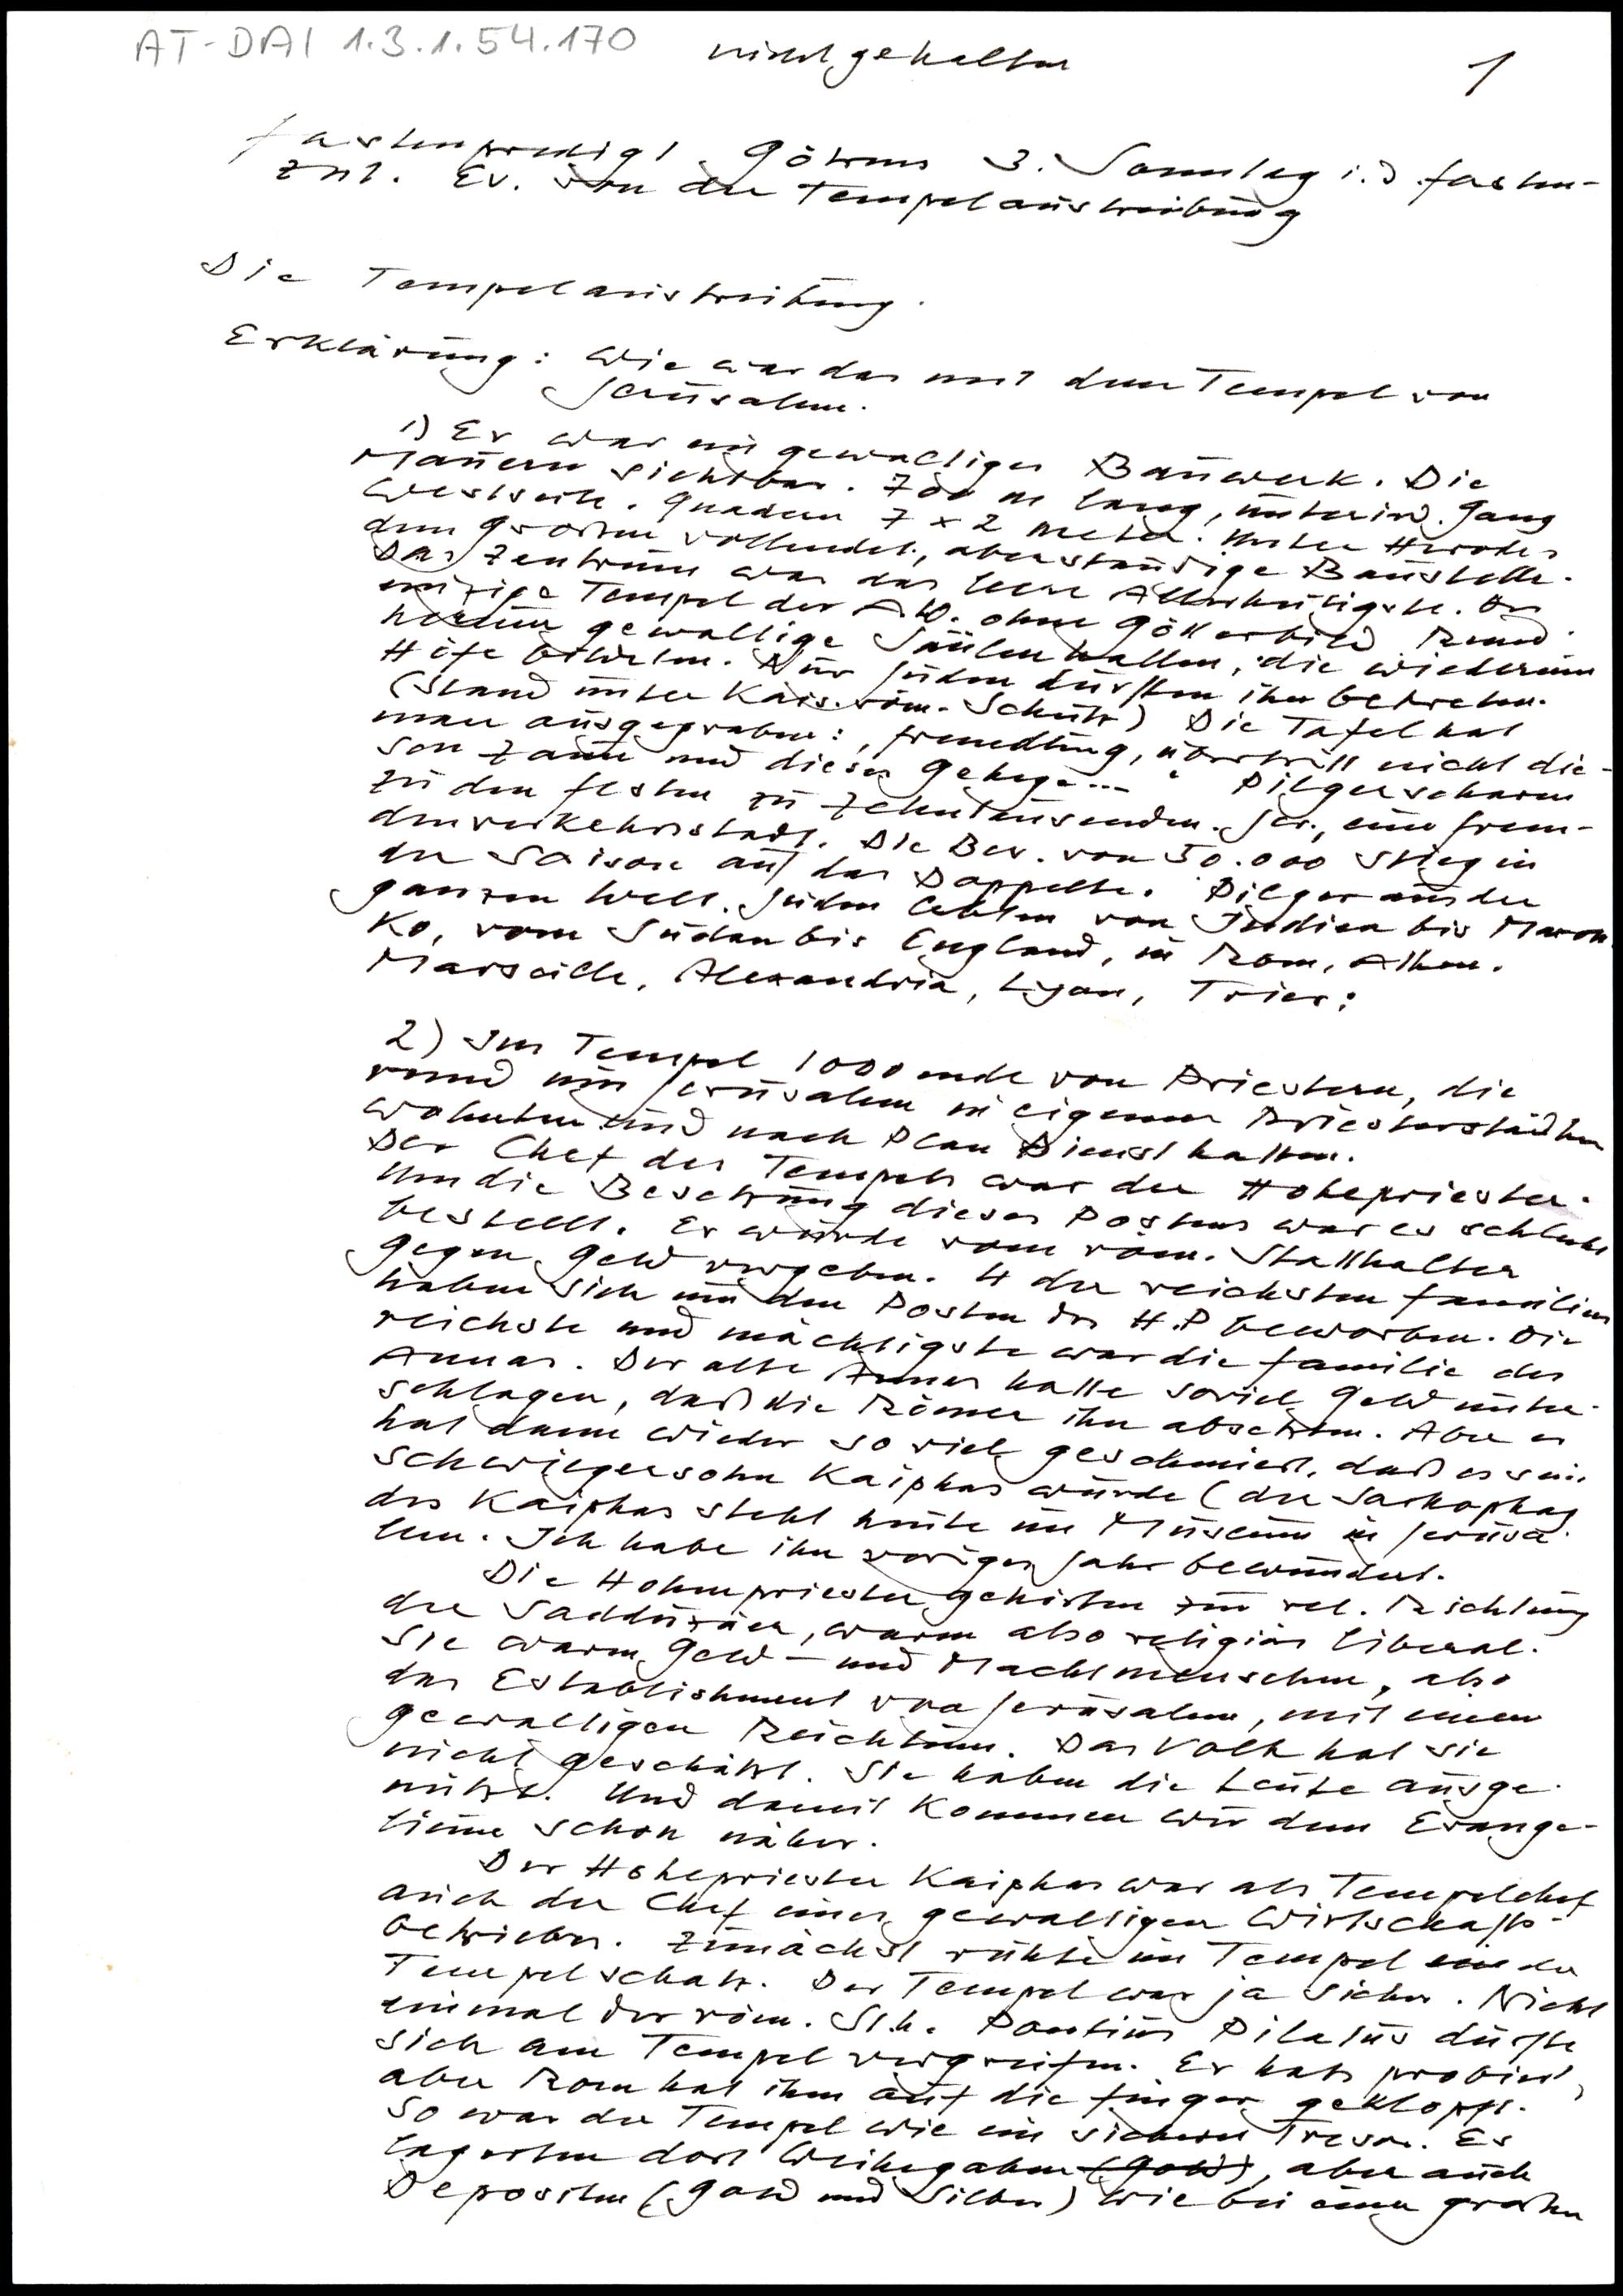 AT-DAI 1.3.1.54.170 nicht gehalten 1
Fastenpredigt Götzens 3. Sonntag i. d. Fasten-
zeit. Ev. von der Tempelaustreibung
Die Tempelaustreibung.
Erklärung: Wie war das mit dem Tempel von
Jerusalem.
1) Er war ein gewaltiges Bauwerk. Die
Mauern sichtbar. 700 m lang, unterird. Gang
Westseite. Quadern 7 x 2 Meter. Unter Herodes
dem Großen vollendet, aber ständige Baustelle.
Das Zentrum war das leere Allerheiligste. Der
einzige Tempel der AW. ohne Götterbild. Rund
herum gewaltige Säulenhallen, die wiederum
Höfe bildeten. Nur Juden durften ihn betreten.
(Stand unter Kais. röm. Schutz) Die Tafel hat
man ausgegraben: "Fremdling, übertritt nicht die-
sen Zaun und dieses Gehege..." Pilgerscharen
zu den Festen zu Zehntausenden. Jer., eine Frem-
denverkehrsstadt. Die Bev. von 50.000 stieg in
der Saison auf das Doppelte. Pilger aus der
ganzen Welt. Juden lebten von Indien bis Marok-
ko, vom Sudan bis England, in Rom, Athen.
Marseille, Alexandria, Lyon, Trier:
2) Im Tempel 1000ende von Priestern, die
rund um Jerusalem in eigenen Priesterstädten
wohnten und nach Plan Dienst hatten.
Der Chef des Tempels war der Hohepriester.
Um die Besetzung dieses Postens war es schlecht
bestellt. Er wurde vom röm. Statthalter
gegen Geld vergeben. 4 der reichsten Familien
haben sich um den Posten des H.P beworben. Die
reichste und mächtigste war die Familie des
Annas. Der alte Annas hatte soviel Geld unter-
schlagen, daß die Römer ihn absetzten. Aber er
hat dann wieder so viel geschmiert, daß es sein
Schwiegersohn Kaiphas wurde (der Sarkophag
des Kaiphas steht heute im Museum in Jerusa-
lem. Ich habe ihn voriges Jahr bewundert.
Die Hohenpriester gehörten zur rel. Richtung
der Sadduzäer, waren also religiös liberal.
Sie waren Geld- und Machtmenschen, also
das Establishment von Jerusalem, mit einem
gewaltigen Reichtum. Das Volk hat sie
nicht geschätzt. Sie haben die Leute ausge-
nützt. Und damit kommen wir dem Evange-
lium schon näher.
Der Hohepriester Kaiphas war als Tempelchef
auch der Chef eines gewaltigen Wirtschafts-
betriebes. Zunächst ruhte im Tempel der
Tempelschatz. Der Tempel war ja sicher. Nicht
einmal der röm. Sth. Pontius Pilatus durfte
sich am Tempel vergreifen. Er hats probiert,
aber Rom hat ihm auf die Finger geklopft.
So war der Tempel wie ein sicherer Tresor. Es
lagerten dort Weihegaben (Gold), aber auch
Depositen (Gold und Silber) wie bei einer großen